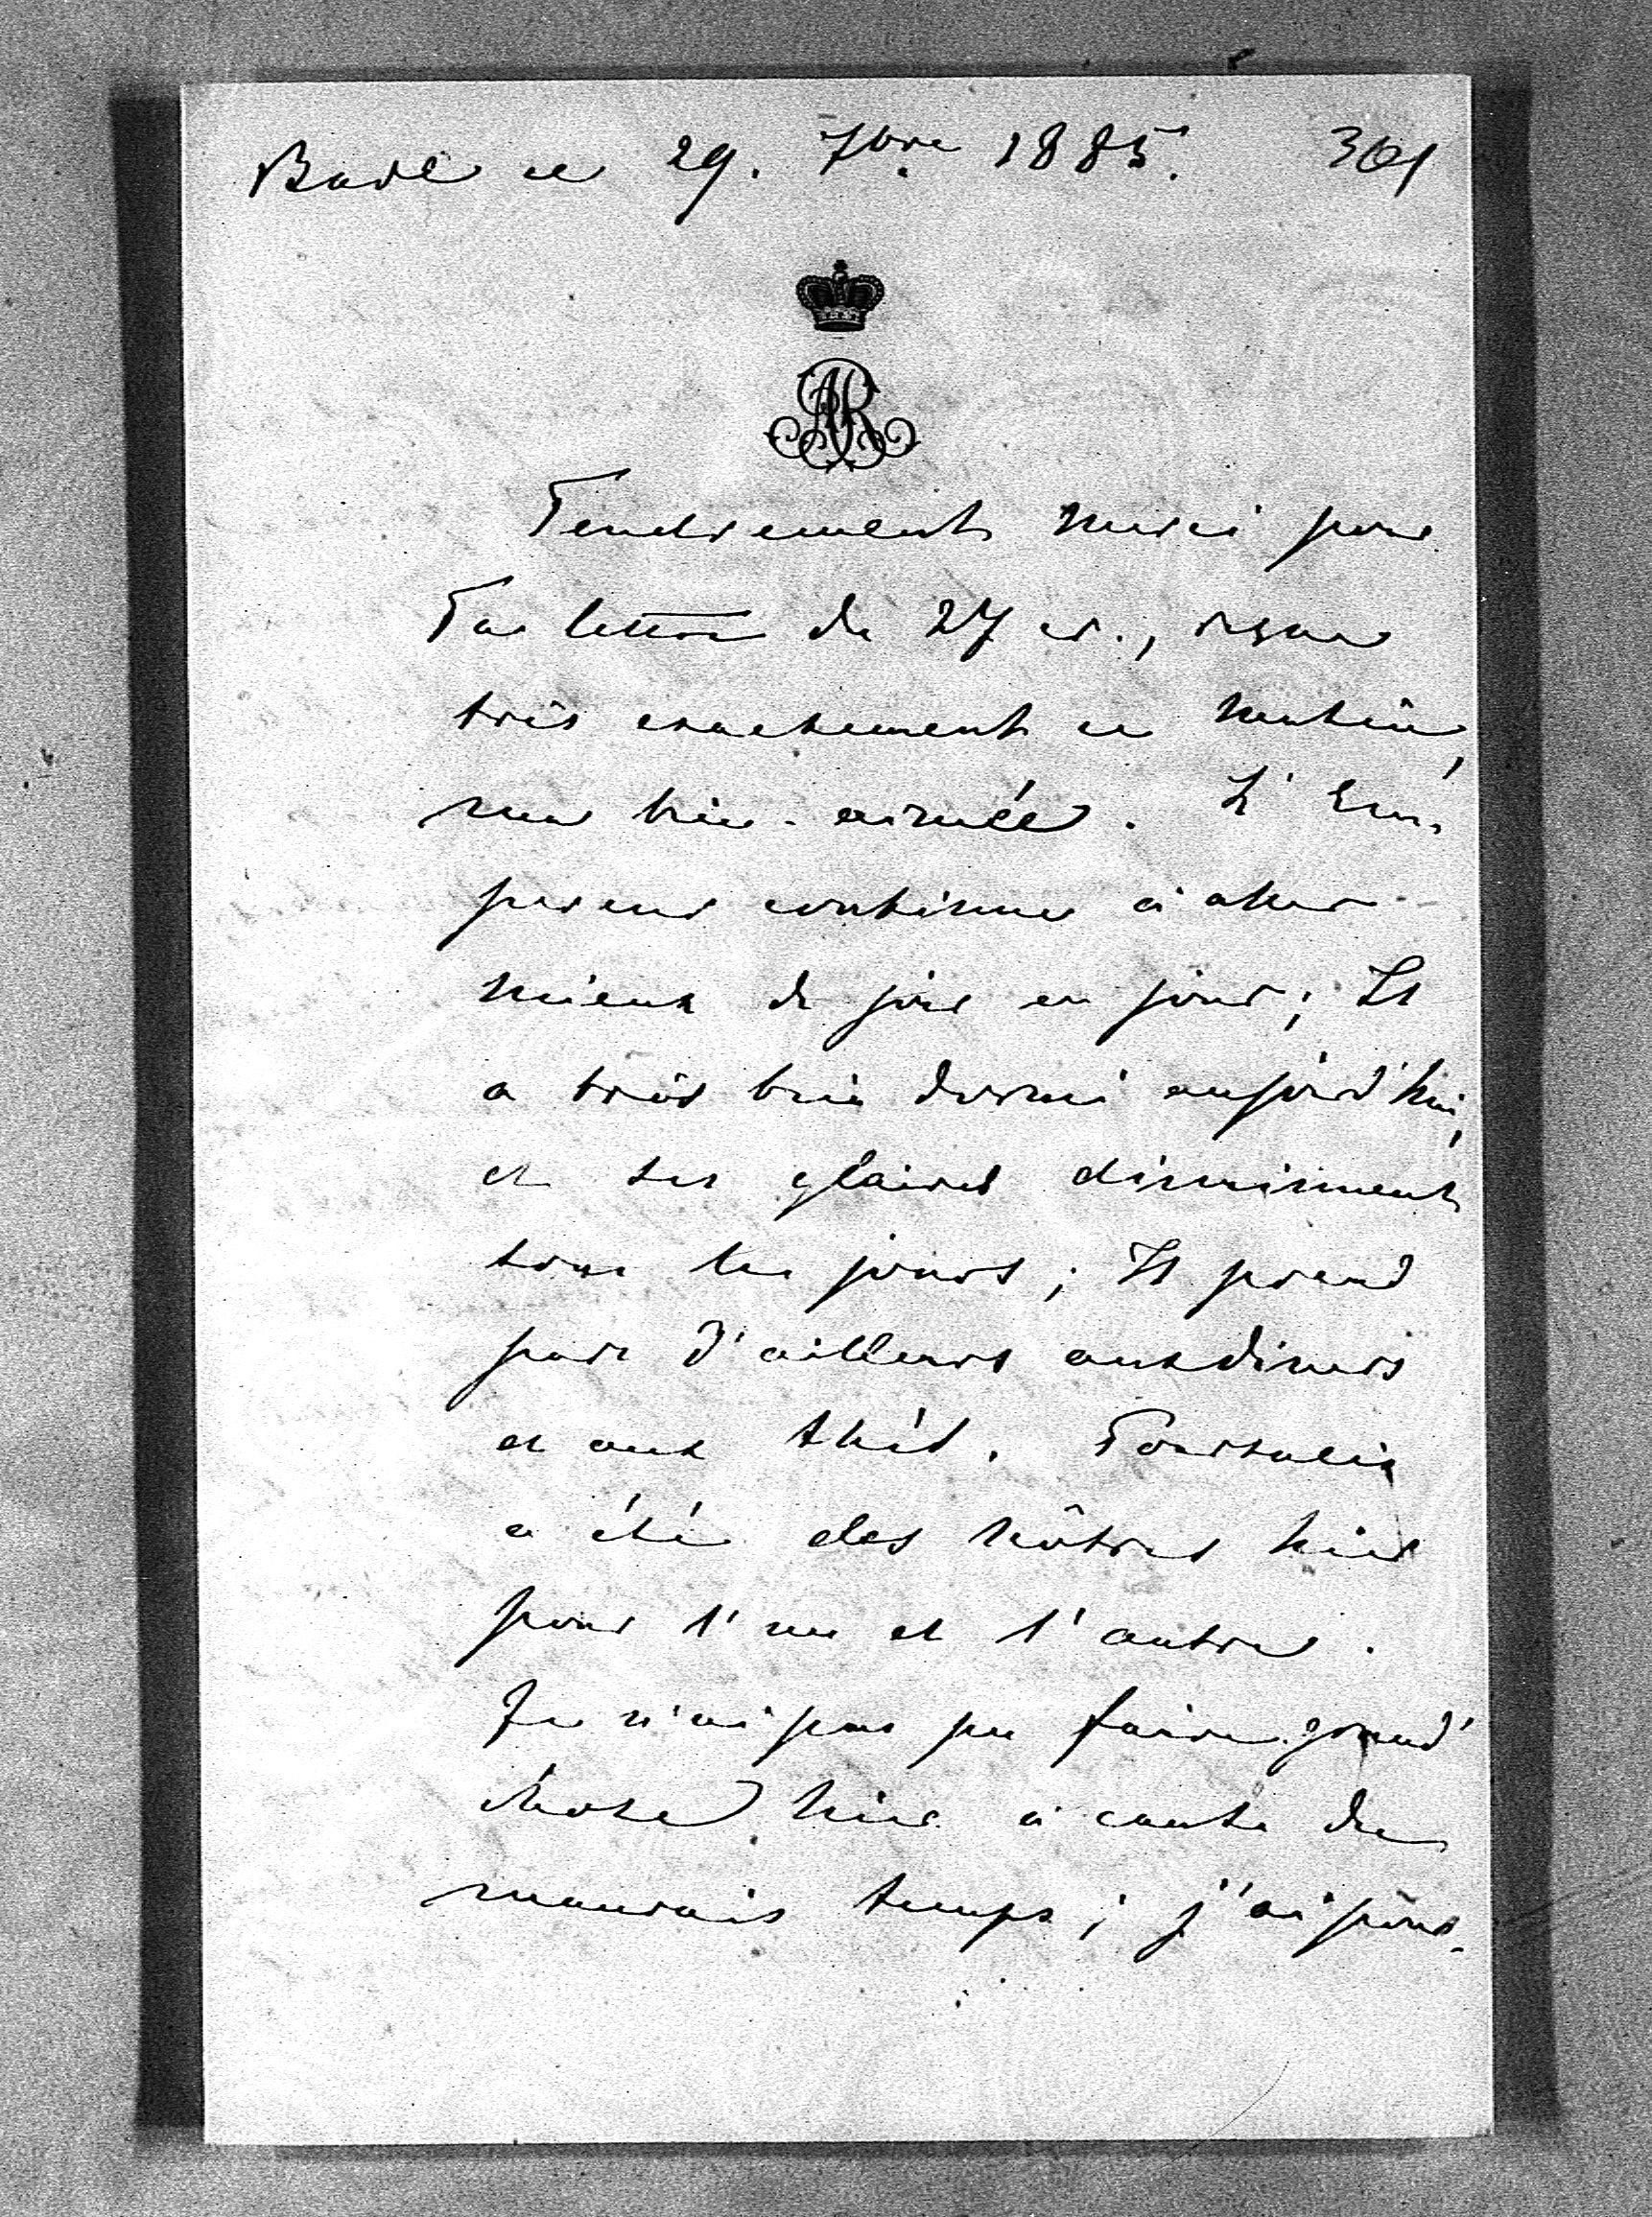 Bade ce 29. 7bre 1885. 301
AR
Tendrement merci pour
Ta lettre du 27 cr., reçue
très exactement ce matin,
ma bien-aimée. L'Em-
pereur continue à aller
mieux de jour en jour; Il
a très bien dormi aujourd'hui,
et ses glaires diminuent
tous les jours; Il prend
part d'ailleurs aux diners
et aux thés.
a été des nôtres hier
pour l'un et l'autre.
Je n'ai pas pu faire grand'
chose hier à cause du
mauvais temps; j'ai pour-